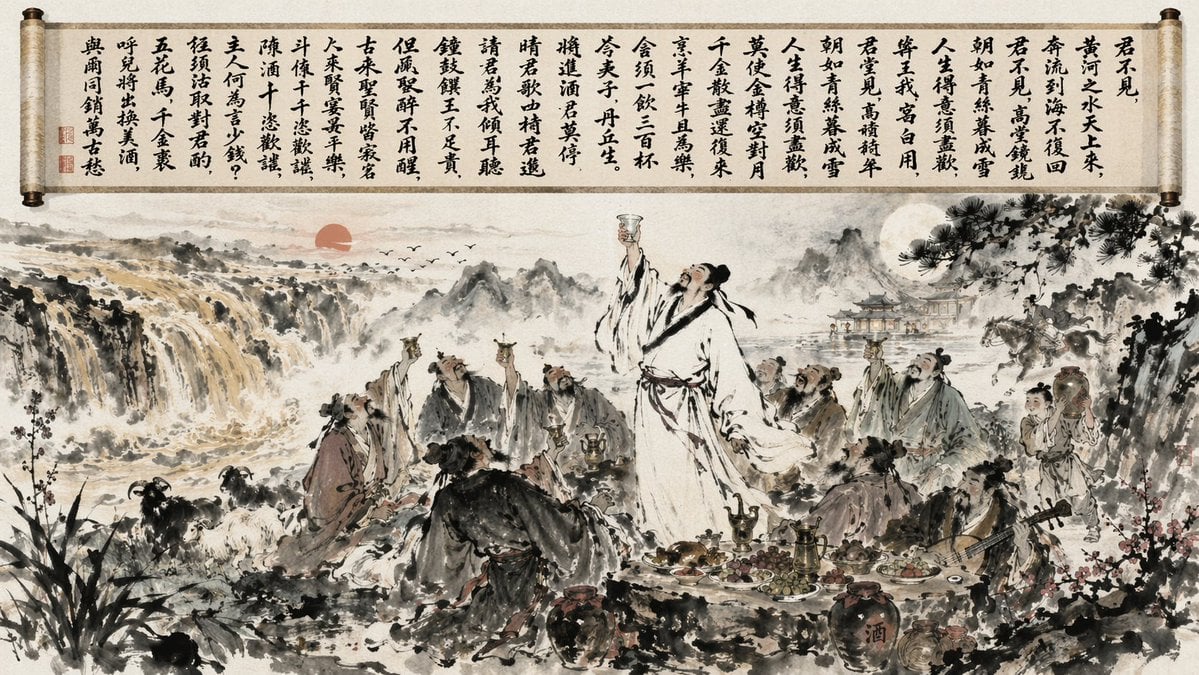 君不見,
黃河之水天上來,
奔流到海不復回
君不見,高鏡
朝如青絲暮成雪
人生得意須盡歡,
王我,白用,
君堂見,高年
朝如青絲暮成雪
人生得意須盡歡,
莫使金樽空對月
千金散盡還復來
烹羊宰牛且為樂,
須一飲三百杯
夫子,丹丘生。
將進酒君莫停
晴君歌椅君進
請君為我傾耳聽
鐘鼓饌王不足貴,
但醉不用醒,
古來聖賢皆寂
來賢宴平樂,
斗千千恣歡謔,
陳酒十恣歡謔,
主人何為言少錢?
徑須沽取對君酌,
五花馬,千金裘
呼兒將出換美酒,
與爾同銷萬古愁
酒